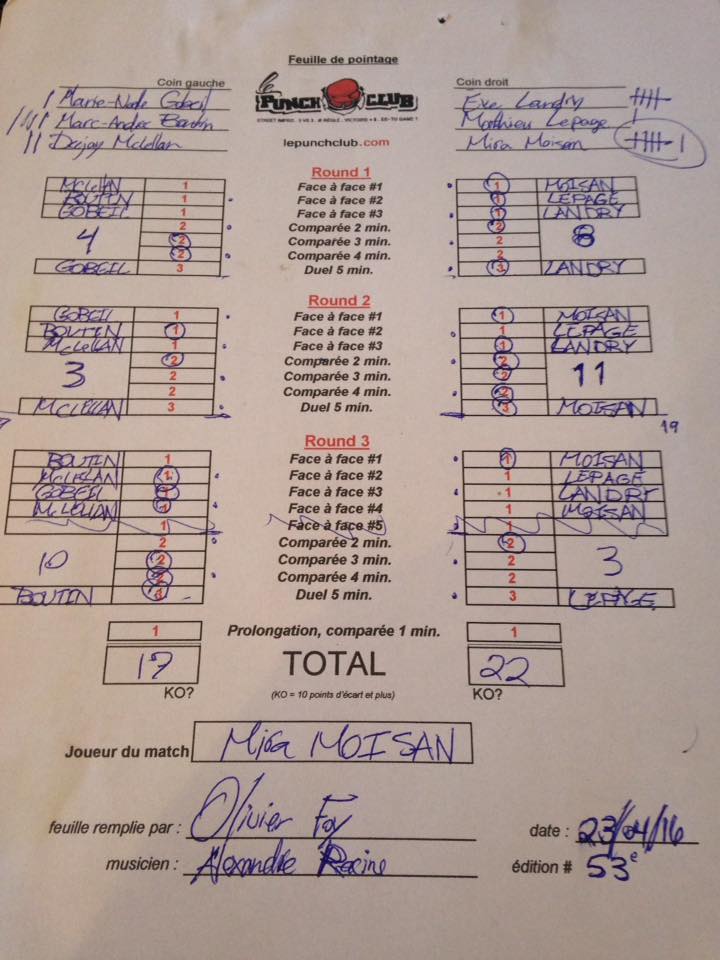 Feuille de pointage
Coin gauche Coin droit
Marie-Noële Gobeil le PUNCH CLUB Eve Landry
Marc-André Boutin STREET IMPRO. 3 VS 3. Ø RÈGLE. Matthieu Lepage
Deejay Mclellan lepunchclub.com Mira Moisan
Round 1
McLELLAN 1 Face à face #1 1 MOISAN
BOUTIN 1 Face à face #2 1 LEPAGE
GOBEIL 1 Face à face #3 1 LANDRY
2 Comparée 2 min. 2
4 2 Comparée 3 min. 2 8
2 Comparée 4 min. 2
GOBEIL 3 Duel 5 min. 3 LANDRY
Round 2
GOBEIL 1 Face à face #1 1 MOISAN
BOUTIN 1 Face à face #2 1 LEPAGE
McLELLAN 1 Face à face #3 1 LANDRY
2 Comparée 2 min. 2
3 2 Comparée 3 min. 2 11
2 Comparée 4 min. 2
McLELLAN 3 Duel 5 min. 3 MOISAN
19
Round 3
BOUTIN 1 Face à face #1 1 MOISAN
McLELLAN 1 Face à face #2 1 LEPAGE
GOBEIL 1 Face à face #3 1 LANDRY
McLELLAN 1 Face à face #4 1 MOISAN
1 Face à face #5 1
2 Comparée 2 min. 2
10 2 Comparée 3 min. 2 3
2 Comparée 4 min. 2
BOUTIN 3 Duel 5 min. 3 LEPAGE
1 Prolongation, comparée 1 min. 1
17 TOTAL 22
KO? (KO = 10 points d'écart et plus) KO?
Joueur du match Mira MOISAN
feuille remplie par : Olivier Foy date : 23/04/16
musicien : Alexandre Racine édition # 53e